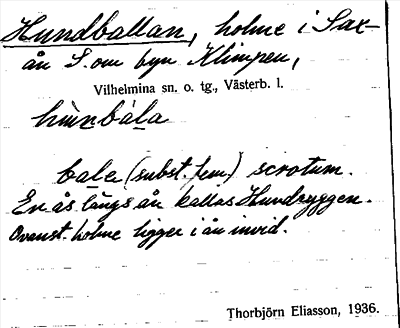 Hundballan, holme i Sax-
ån S. om byn Klimpen,
Vilhelmina sn. o. tg., Västerb. l.
hùnbàla
bale (subst. fem.) scrotum.
En ås längs ån kallas Hundryggen.
Ovanst. holme ligger i ån invid.
Thorbjörn Eliasson, 1936.